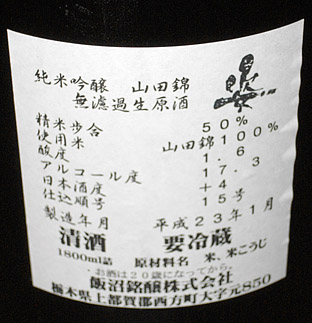 純米吟醸　山田錦
無濾過生原酒
精米歩合　50%
使用米　山田錦100%
酸度　1.6
アルコール度　17.3
日本酒度　+4
仕込順号　15号
製造年月　平成23年1月
清酒　要冷蔵
1800ml詰　原材料名　米、米こうじ
・お酒は20歳になってから。
飯沼銘醸株式会社
栃木県上都賀郡西方町大字元850